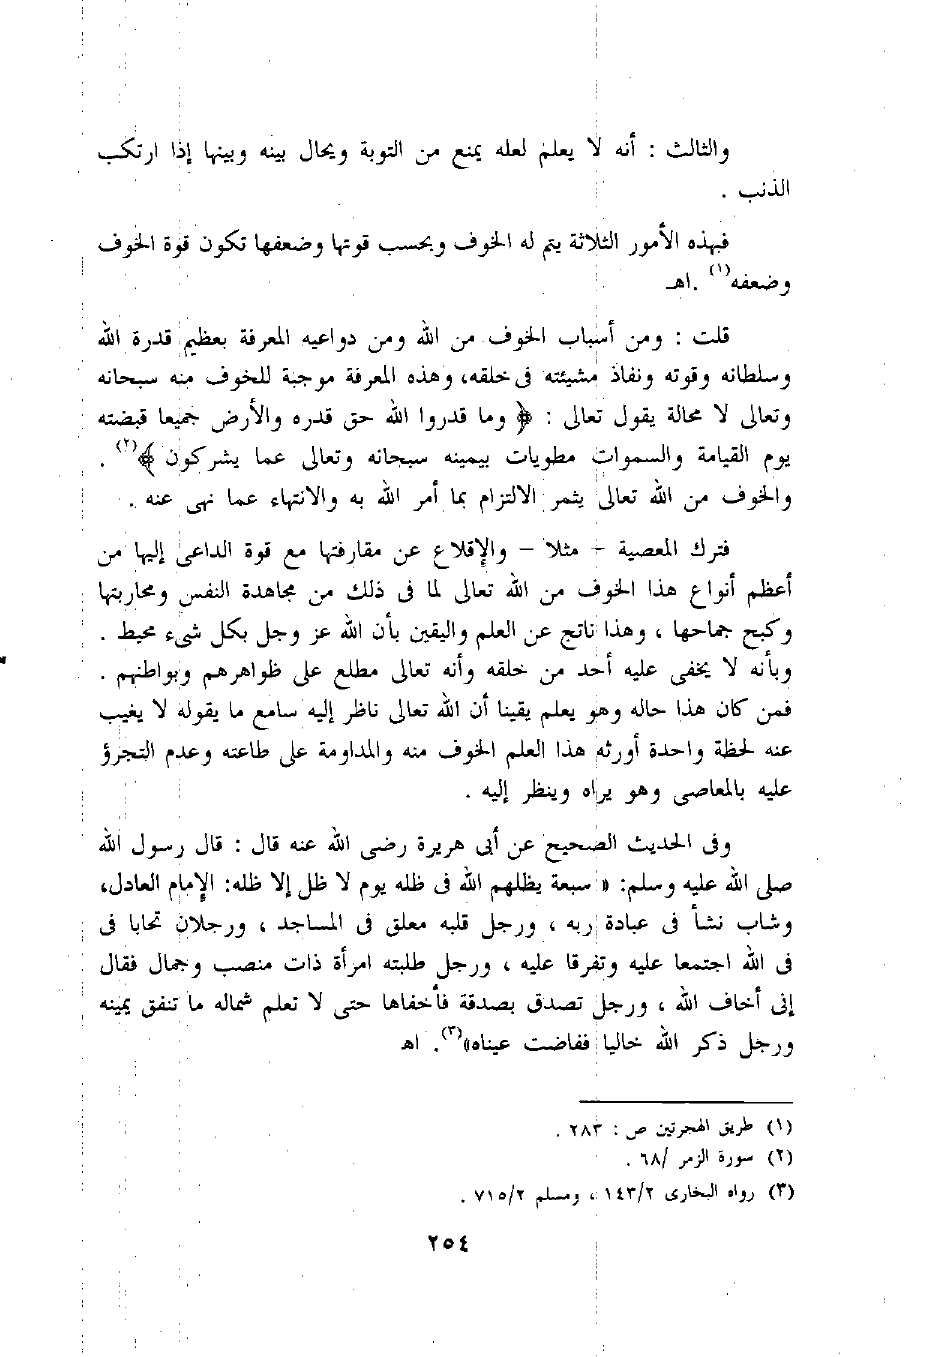 والثالث : أنه لا يعلم لعله يمنع من التوبة ويحال بينه وبينها إذا ارتكب
الذنب .
فبهذه الأمور الثلاثة يتم له الخوف وبحسب قوتها وضعفها تكون قوة الخوف
وضعفه(١) .اهـ
قلت : ومن أسباب الخوف من الله ومن دواعيه المعرفة بعظيم قدرة الله
وسلطانه وقوته ونفاذ مشيئته فى خلقه، وهذه المعرفة موجبة للخوف منه سبحانه
وتعالى لا محالة يقول تعالى : ﴿ وما قدروا الله حق قدره والأرض جميعا قبضته
يوم القيامة والسموات مطويات بيمينه سبحانه وتعالى عما يشركون ﴾(٢) .
والخوف من الله تعالى يثمر الالتزام بما أمر الله به والانتهاء عما نهى عنه .
فترك المعصية – مثلا – والإقلاع عن مقارفتها مع قوة الداعى إليها من
أعظم أنواع هذا الخوف من الله تعالى لما فى ذلك من مجاهدة النفس ومحاربتها
وكبح جماحها ، وهذا ناتج عن العلم واليقين بأن الله عز وجل بكل شىء محيط .
وبأنه لا يخفى عليه أحد من خلقه وأنه تعالى مطلع على ظواهرهم وبواطنهم .
فمن كان هذا حاله وهو يعلم يقينا أن الله تعالى ناظر إليه سامع ما يقوله لا يغيب
عنه لحظة واحدة أورثه هذا العلم الخوف منه والمداومة على طاعته وعدم التجرؤ
عليه بالمعاصى وهو يراه وينظر إليه .
وفى الحديث الصحيح عن أبى هريرة رضى الله عنه قال : قال رسول الله
صلى الله عليه وسلم: « سبعة يظلهم الله فى ظله يوم لا ظل إلا ظله: الإمام العادل،
وشاب نشأ فى عبادة ربه ، ورجل قلبه معلق فى المساجد ، ورجلان تحابا فى
فى الله اجتمعا عليه وتفرقا عليه ، ورجل طلبته امرأة ذات منصب وجمال فقال
إنى أخاف الله ، ورجل تصدق بصدقة فأخفاها حتى لا تعلم شماله ما تنفق يمينه
ورجل ذكر الله خاليا ففاضت عيناه»(٣). اهـ
(١) طريق الهجرتين ص : ٢٨٣ .
(٢) سورة الزمر /٦٨ .
(٣) رواه البخارى ١٤٣/٢ ، ومسلم ٧١٥/٢ .
٢٥٤